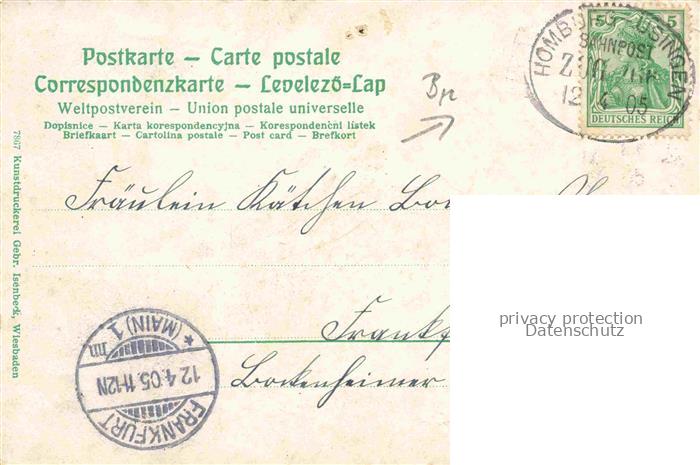 Postkarte – Carte postale
Correspondenzkarte – Levelező-Lap
Weltpostverein – Union postale universelle
Dopisnice – Karta korespondencyjna – Korespondenční lístek
Briefkaart – Cartolina postale – Post card – Brefkort
5 5
DEUTSCHES REICH
HOMBURG USINGEN
BAHNPOST
ZUG
12 4 05
Fräulein Kätchen
Bockenheimer
privacy protection
Datenschutz
FRANKFURT
* (MAIN) 1 m
12.4.05.11-12N
7867 Kunstdruckerei Gebr. Isenbeck, Wiesbaden